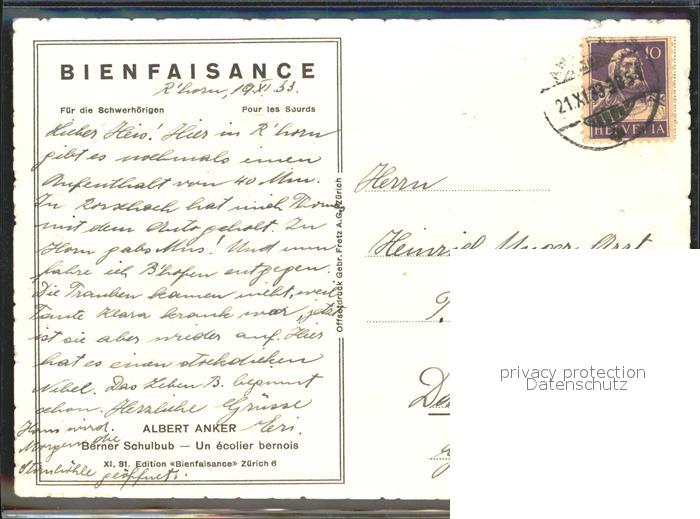 BIENFAISANCE
R'horn, 19.XI.33.
Für die Schwerhörigen Pour les Sourds
Lieber Heio! Hier in R'horn
gibt es nochmals einen
Aufenthalt von 40 Min.
In Rorschach hat mich
mit dem Auto geholt. In
Horn gabs Mus! Und nun
fahre ich B'hofen entgegen.
Die Trauben kamen nicht, weil
Tante Klara krank war, jetzt
ist sie aber wieder auf. Hier
hat es einen stockdicken
Nebel. Das Leben B. beginnt
schon. Herzliche Grüsse
Eri.
Hans wird
Morgen die
geöffnet.
ALBERT ANKER
Berner Schulbub — Un écolier bernois
XI. 31. Edition «Bienfaisance» Zürich 6
Offsetdruck Gebr. Fretz A.G. Zürich
10
HELVETIA
21.XI.33
Herrn
Heinrich
privacy protection
Datenschutz